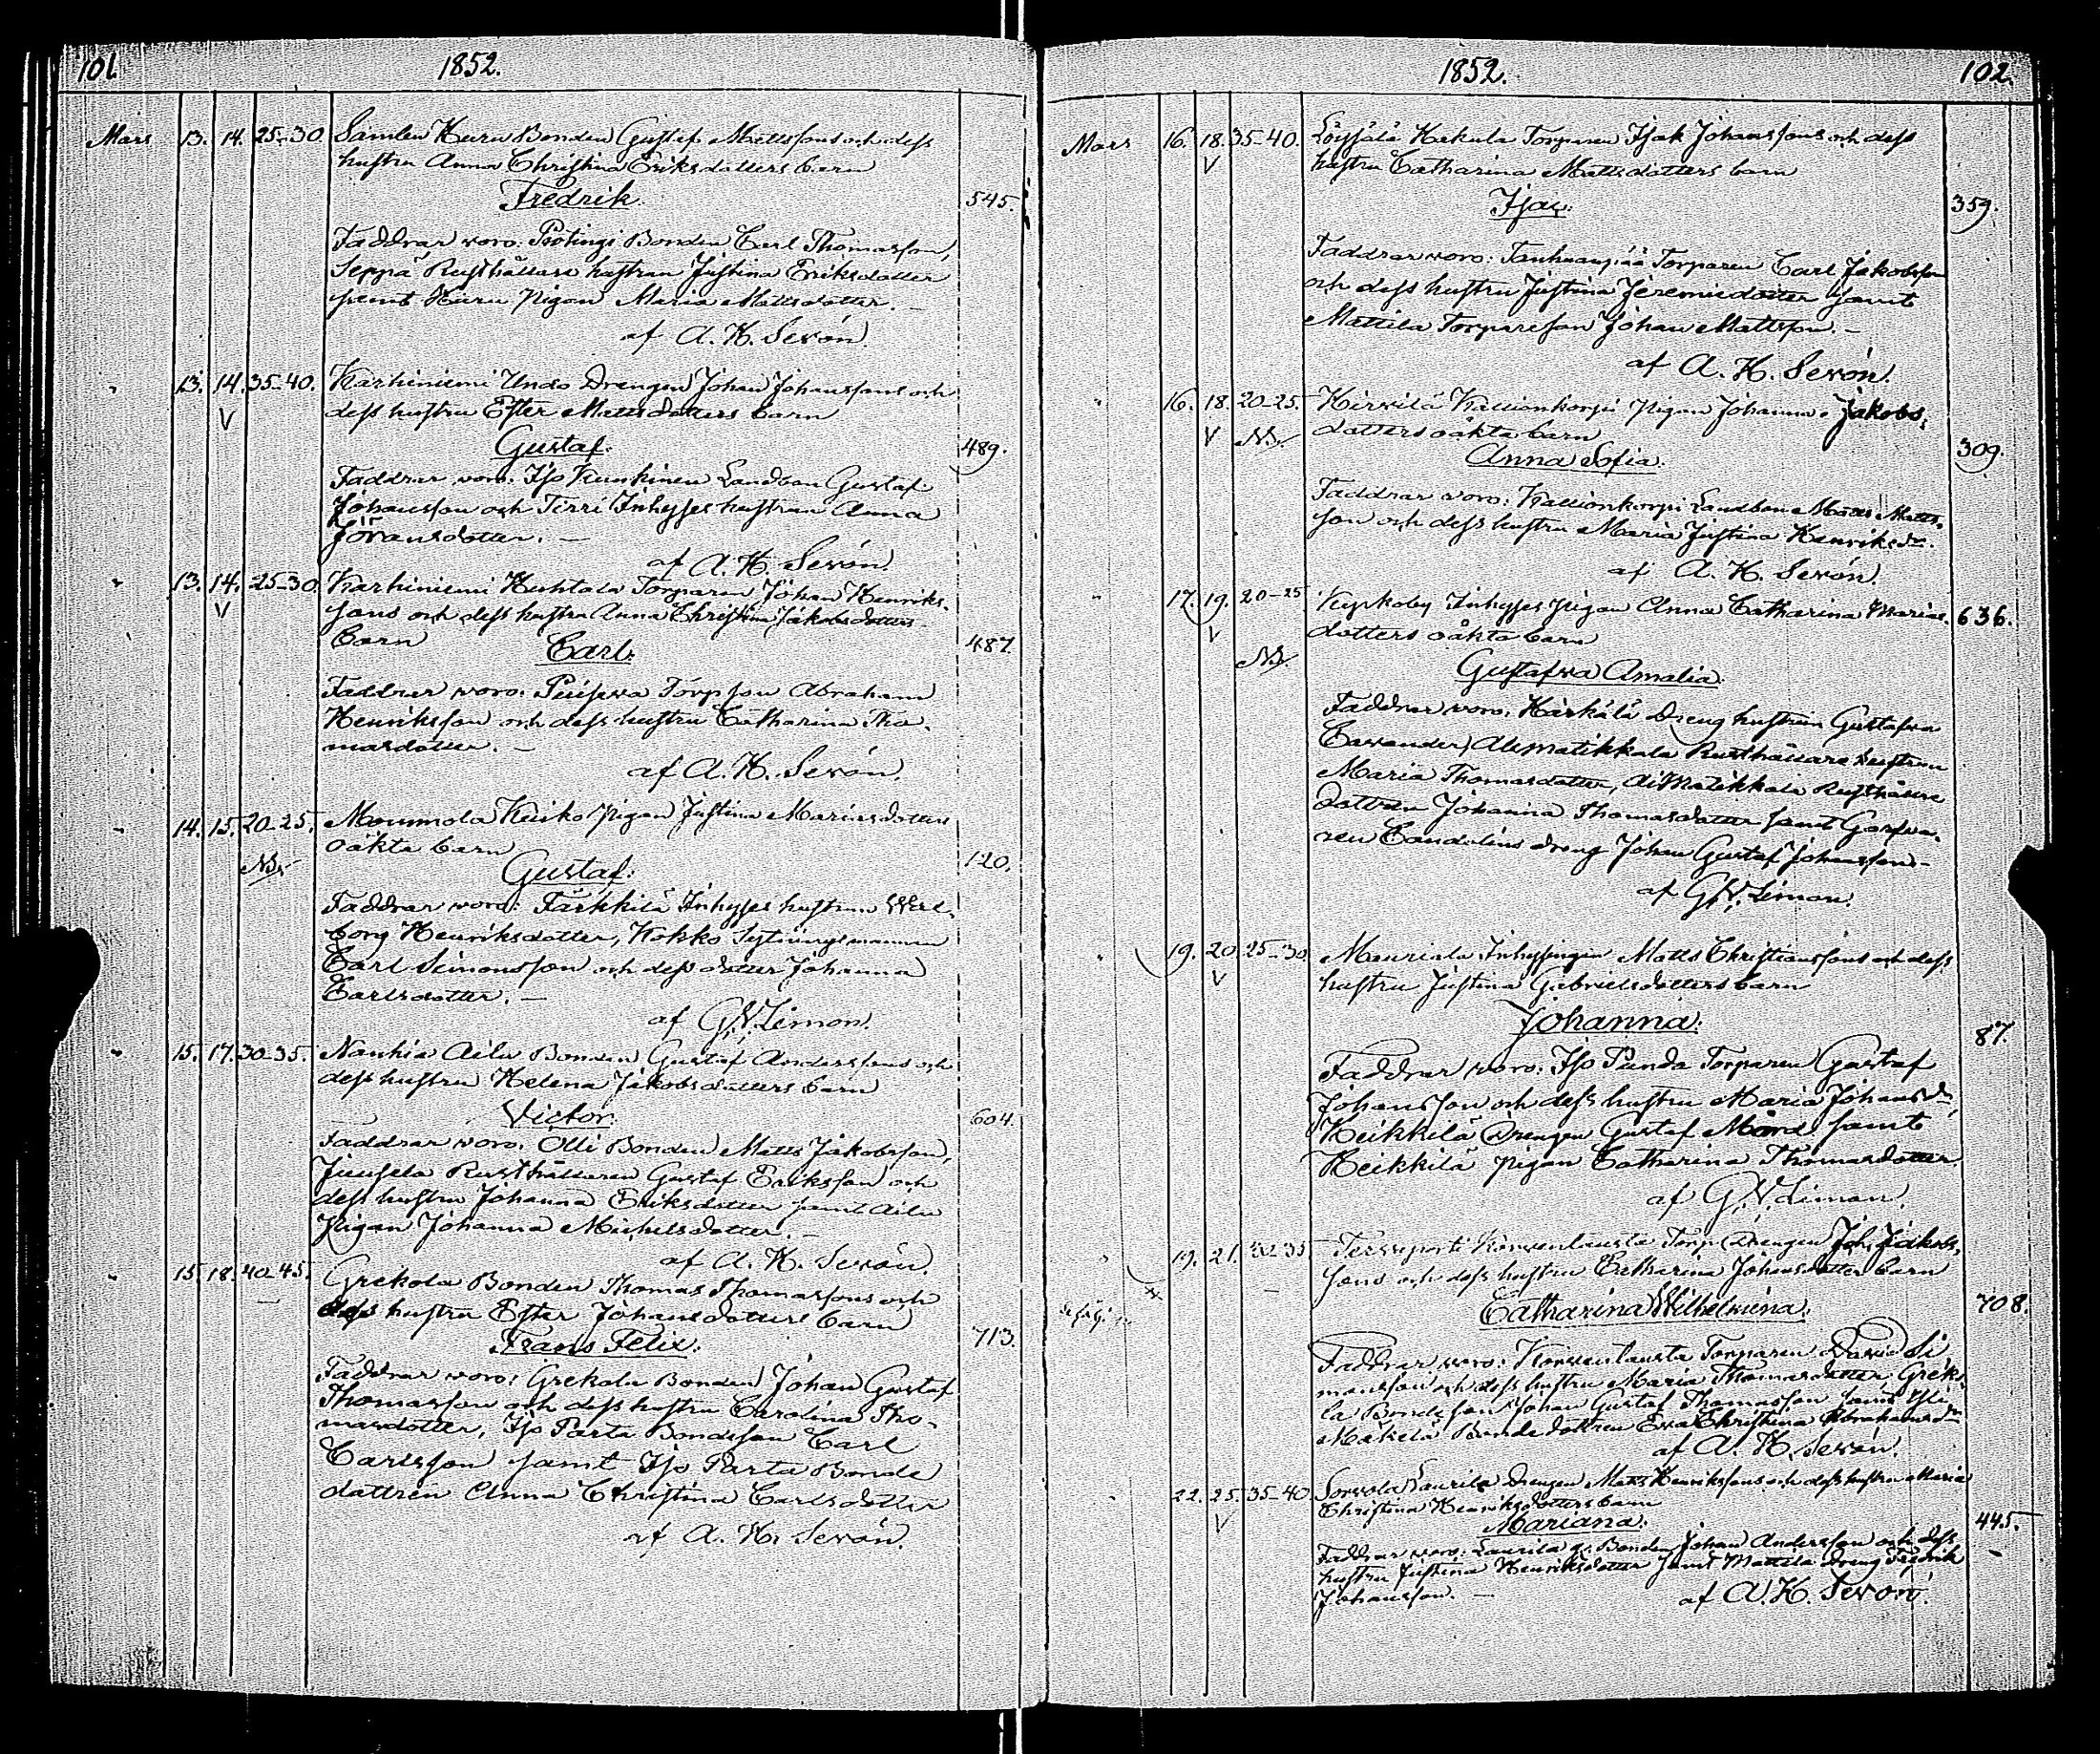 101. 1852.
Mars 13. 14. 25-30. Samlen Huru Bonden Gustaf Mattssons och dess
hustru Anna Christina Eriksdotters barn
Fredrik. 545.
Faddrar voro: Bonden Carl Thomasson,
Seppä Rusthållare hustrun Justina Eriksdotter
samt Huru pigan Maria Mattsdotter. -
af A. H. Sevón.
" 13. 14. 35-40. Karhiniemi Undo Drengen Johan Johanssons och
V dess hustru Ester Mattsdotters barn
Gustaf. 489.
Faddrar voro: Iso Kunkinen Landbon Gustaf
Johansson och Tirri Inhyses hustrun Anna
Göransdotter. -
af A. H. Sevón.
" 13. 14. 25-30. Karhiniemi Huhtala Torparen Johan Henriks-
V sons och dess hustru Anna Christina Jakobsdotters
barn Carl. 487.
Faddrar voro: Torpson Abraham
Henriksson och dess hustru Catharina Tho-
masdotter. -
af A. H. Sevón.
" 14. 15. 20-25. Mommola Keiko pigan Justina Mariasdotters
oäkta barn
NB.
Gustaf. 120.
Faddrar voro: Tärkkilä Inhyses hustrun Wal-
borg Henriksdotter, Kokko Sytningsmannen
Carl Simonsson och dess dotter Johanna
Carlsdotter. -
af G. W. Limon.
" 15. 17. 30-35. Nanhia Ailu Bonden Gustaf Anderssons och
dess hustru Helena Jakobsdotters barn
Victor. 604.
Faddrar voro: Olli Bonden Matts Jakobsson,
Rusthållaren Gustaf Eriksson och
dess hustru Johanna Eriksdotter samt Ailu
Pigan Johanna Michelsdotter. -
af A. H. Sevón.
" 15. 18. 40-45. Grekola Bonden Thomas Thomassons och
dess hustru Ester Johansdotters barn
Frans Felix. 713.
Faddrar voro: Grekola Bonden Johan Gustaf
Thomasson och dess hustru Carolina Tho-
masdotter, Iso Parta Bondeson Carl
Carlsson samt Iso Parta Bonde
dottren Anna Christina Carlsdotter
af A. H. Sevón.
1852. 102.
Mars 16. 18. 35-40. Löysjälä Kakula Torparen Isak Johanssons och dess
V hustru Catharina Mattsdotters barn
Isac. 359.
Faddrar voro: Tanhuanpää Torparen Carl Jakobsson
och dess hustru Justina Jeremiedotter samt
Mattila Torpareson Johan Mattsson. -
af A. H. Sevón.
" 16. 18. 20-25. Hirvilä Kallionkorpi pigan Johanna Jakobs-
V NB. dotters oäkta barn
Anna Sofia. 309.
Faddrar voro: Kallionkorpi Landbon Matts Matts-
son och dess hustru Maria Justina Henriksdr.
af A. H. Sevón.
" 17. 19. 20-25 Kyrkoby Inhyses pigan Anna Catharina Marias- 636.
V dotters oäkta barn
NB.
Gustafva Amalia.
Faddrar voro: Härkälä Dreng hustrun Gustafva
Cavander, Alimatikkala Rusthållare hustrun
Maria Thomasdotter, Alimatikkala Rusthållare
dottren Johanna Thomasdotter samt Garfva-
ren Candolins dreng Johan Gustaf Johansson. -
af G. W. Limon.
" 19. 20. 25-30 Mauriala Inhysingen Matts Christianssons och dess
V hustru Justina Gabrielsdotters barn
Johanna. 87.
Faddrar voro: Iso Punda Torparen Gustaf
Johansson och dess hustru Maria Johansdr,
Heikkilä Drengen Gustaf Mård samt
Heikkilä pigan Catharina Thomasdotter.
af G. W. Limon.
" 19. 21. 30-35 Korvenlausta Torp Drengen Joh. Jakobs-
sons och dess hustru Catharina Johansdotters barn
Catharina Wilhelmina. 708.
Faddrar voro: Korvenlausta Torparen David Si-
monsson och dess hustru Maria Thomasdotter, Greko-
la Bondeson Johan Gustaf Thomasson samt Yli
Mäkelä Bondedottren Eva Christina Abrahamsdr
af A. H. Sevón.
" 22. 25. 35-40 Sorvola Laurila Drengen Matts Henrikssons och dess hustru Maria
V Christina Henriksdotters barn
Mariana. 445.
Faddrar voro: Laurila Bonden Johan Andersson och dess
hustru Justina Henriksdotter samt Mattila Dreng Fredrik
Johansson. - af A. H. Sevón.